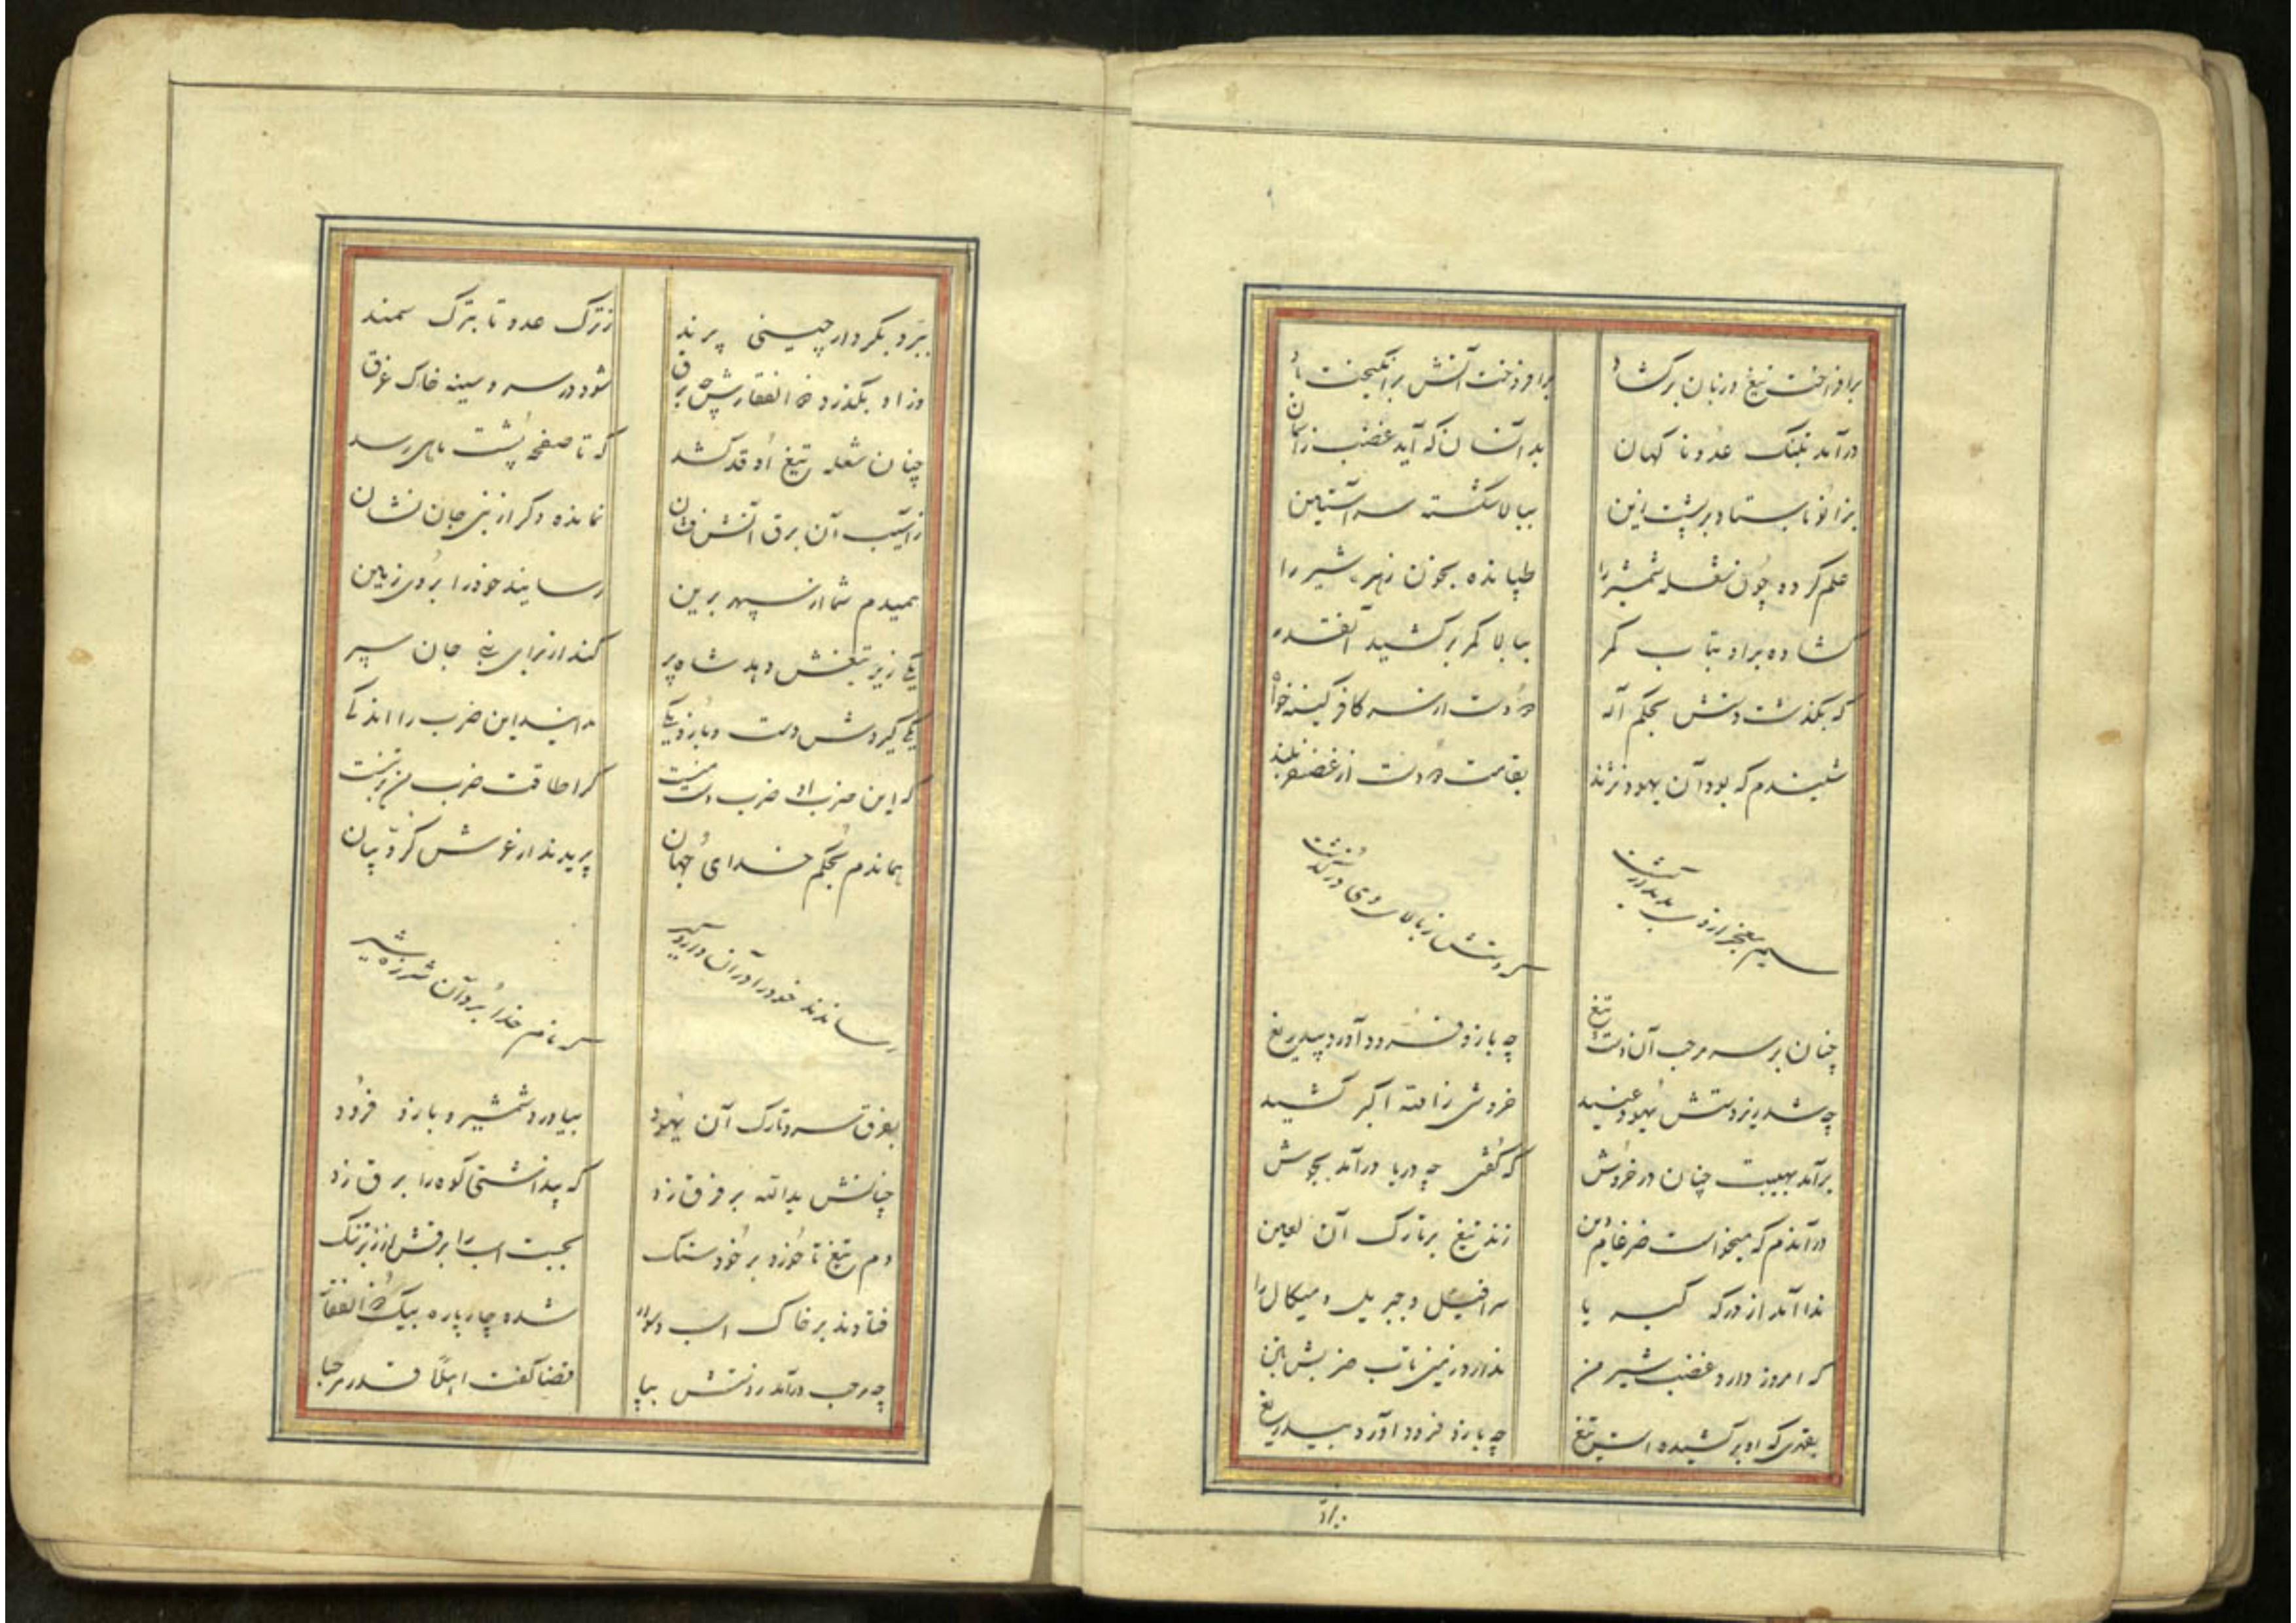 برافراخت تیغ و زبان برکشاد برافروخت آتش برانگیخت باد
درآمد بجنگ عدو ناکهان بدانسان که آید غضب زآسمان
بزانو باستاد بر پشت زین ببالا شکسته سر آستین
علم کرده چون شعله شمشیر را طپانده بخون زهره شیر را
کشاده برو بتاب کمر ببالا کمر برکشید آنقدر
که بکذشت دستش بحکم آله دو دست از سر کافر کینه خواه
شنیدم که بود آن یهود نژند بقامت دو دست از غضنفر بلند
سر دستش از بالای وی درکذشت
چنان بر سر مرحب آن دست تیغ چه بازو فرود آورد بیدریغ
چه شد زیر دستش یهود عنید خروشی ز الله اکبر کشید
برآمد بهیبت چنان در خروش که کفتی چه دریا درآمد بجوش
درآندم که میخواست ضرغام دین زند تیغ بر تارک آن لعین
ندا آمد از درکه کبریا سرافیل و جبریل و میکال را
که امروز دارد غضب شیر من ندارد زمین تاب ضربش
بقدری که او برکشیده است تیغ چه بازو فرود آورد بیدریغ
ببرد بکردار چینی پرند ز ترک عدو تا بترک سمند
وز او بکذرد ذوالفقارش چه برق شود در سر و سینه خاک غرق
چنان شعله تیغ او قد کشد که تا صفحه پشت ماهی رسد
ز آسیب آن برق آتش فشان نمانده دکر از بنی جان نشان
همیدم شما از سپهر برین رسانید خود را بروی زمین
یکی زیر تیغش دهد شاه پر کند از برای بنی جان سپر
یکی کیردش دست و بازو یکی این ضرب را اندکی
که این ضرب او ضرب دست منست کرا طاقت ضرب من در تنست
هماندم بحکم خدای جهان پریدند از عرش کروبیان
رساندند خود را در آن دار و کیر سر نام خدا برد آن شرزه شیر
بفرق سر و تارک آن یهود بیاورد شمشیر و بازو فرود
چنانش یدالله بر فرق زد که پنداشتی کوه را برق زد
دم تیغ تا خورد بر خود سنک بجست اسب را برقش از زیر تنک
فتادند بر خاک اسب و سوار شده چار پاره بیک ذوالفقار
چه مرحب درآمد ز دستش بپا قضا کفت اهلا قدر مرحبا